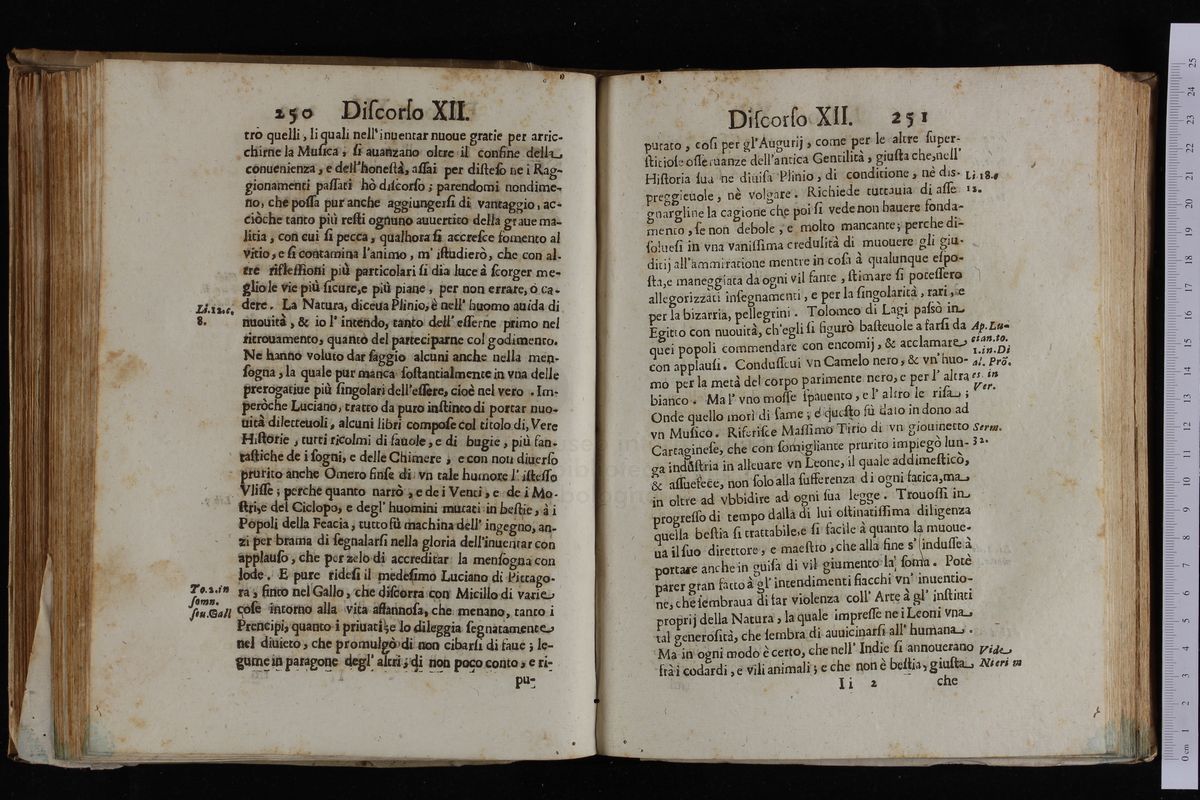 250 Diſcorſo XII.
trò quelli, li quali nell'inuentar nuoue gratie per arric-
chirne la Muſica, ſi auanzano oltre il confine della
conuenienza, e dell'honeſtà, aſſai per diſteſo ne i Rag-
gionamenti paſſati hò diſcorſo; parendomi nondime-
no, che poſſa pur anche aggiungerſi di vantaggio, ac-
ciòche tanto più reſti ognuno auuertito della graue ma-
litia, con cui ſi pecca, qualhora ſi accreſce fomento al
vitio, e ſi contamina l'animo, m' iſtudierò, che con al-
tre rifleſſioni più particolari ſi dia luce à ſcorger me-
glio le vie più ſicure, e più piane, per non errare, ò ca-
dere. La Natura, diceua Plinio, è nell' huomo auida di
Li. 12. c.
8.
nuouità, & io l' intendo, tanto dell' eſſerne primo nel
ritrouamento, quanto del parteciparne col godimento.
Ne hanno voluto dar ſaggio alcuni anche nella men-
ſogna, la quale pur manca ſoſtantialmente in vna delle
prerogatiue più ſingolari dell'eſſere, cioè nel vero. Im-
peròche Luciano, tratto da puro inſtinto di portar nuo-
uità diletteuoli, alcuni libri compoſe col titolo di, Vere
Hiſtorie, tutti ricolmi di fauole, e di bugie, più fan-
taſtiche de i ſogni, e delle Chimere, e con non diuerſo
prurito anche Omero finſe di vn tale humore l' iſteſſo
Vliſſe; perche quanto narrò, e de i Venti, e de i Mo-
ſtri, e del Ciclopo, e degl' huomini mutati in beſtie, à i
Popoli della Feacia, tutto fù machina dell' ingegno, an-
zi per brama di ſegnalarſi nella gloria dell'inuentar con
applauſo, che per zelo di accreditar la menſogna con
lode. E pure rideſi il medeſimo Luciano di Pittago-
To. 2. in
ſomn.
ſeu. Gall
ra, finto nel Gallo, che diſcorra con Micillo di varie
coſe intorno alla vita affannoſa, che menano, tanto i
Prencipi, quanto i priuati; e lo dileggia ſegnatamente
nel diuieto, che promulgò di non cibarſi di faue; le-
gume in paragone degl' altri, di non poco conto, e ri-
pu-
Diſcorſo XII. 251
putato, coſi per gl'Augurij, come per le altre ſuper-
ſtitioſe oſſeruanze dell'antica Gentilità, giuſta che, nell'
Hiſtoria ſua ne diuiſa Plinio, di conditione, nè dis-
Li 18. c
12.
preggieuole, nè volgare. Richiede tuttauia di aſſe
gnargline la cagione che poi ſi vede non hauere fonda-
mento, ſe non debole, e molto mancante; perche di-
ſolueſi in vna vaniſſima credulità di muouere gli giu-
ditij all'ammiratione mentre in coſa à qualunque eſpo-
ſta, e maneggiata da ogni vil fante, ſtimare ſi poteſſero
allegorizzati inſegnamenti, e per la ſingolarità, rari, e
per la bizarria, pellegrini. Tolomeo di Lagi paſsò in
Egitto con nuouità, ch'egli ſi figurò baſteuole a farſi da
Ap. Lu-
cian. to.
1. in. Di
al. Prō.
es. in
Ver.
quei popoli commendare con encomij, & acclamare
con applauſi. Conduſſeui vn Camelo nero, & vn'huo-
mo per la metà del corpo parimente nero, e per l' altra
bianco. Ma l' vno moſſe ſpauento, e l' altro le riſa;
Onde quello morì di fame; e queſto fù dato in dono ad
vn Muſico. Riferiſce Maſſimo Tirio di vn giouinetto
Serm.
32.
Cartagineſe, che con ſomigliante prurito impiegò lun-
ga induſtria in alleuare vn Leone, il quale addimeſticò,
& aſſuefece, non ſolo alla ſufferenza di ogni fatica, ma
in oltre ad vbbidire ad ogni ſua legge. Trouoſſi in
progreſſo di tempo dalla di lui oſtinatiſſima diligenza
quella beſtia ſi trattabile, e ſi facile à quanto la muoue-
ua il ſuo direttore, e maeſtro, che alla fine s' induſſe à
portare anche in guiſa di vil giumento la ſoma. Potè
parer gran fatto à gl' intendimenti fiacchi vn' inuentio-
ne, che ſembraua di far violenza coll' Arte à gl' inſtinti
proprij della Natura, la quale impreſſe ne i Leoni vna
tal generoſità, che ſembra di auuicinarſi all' humana.
Ma in ogni modo è certo, che nell' Indie ſi annouerano
Vide
Nieri m
frà i codardi, e vili animali; e che non è beſtia, giuſta
Ii 2 che